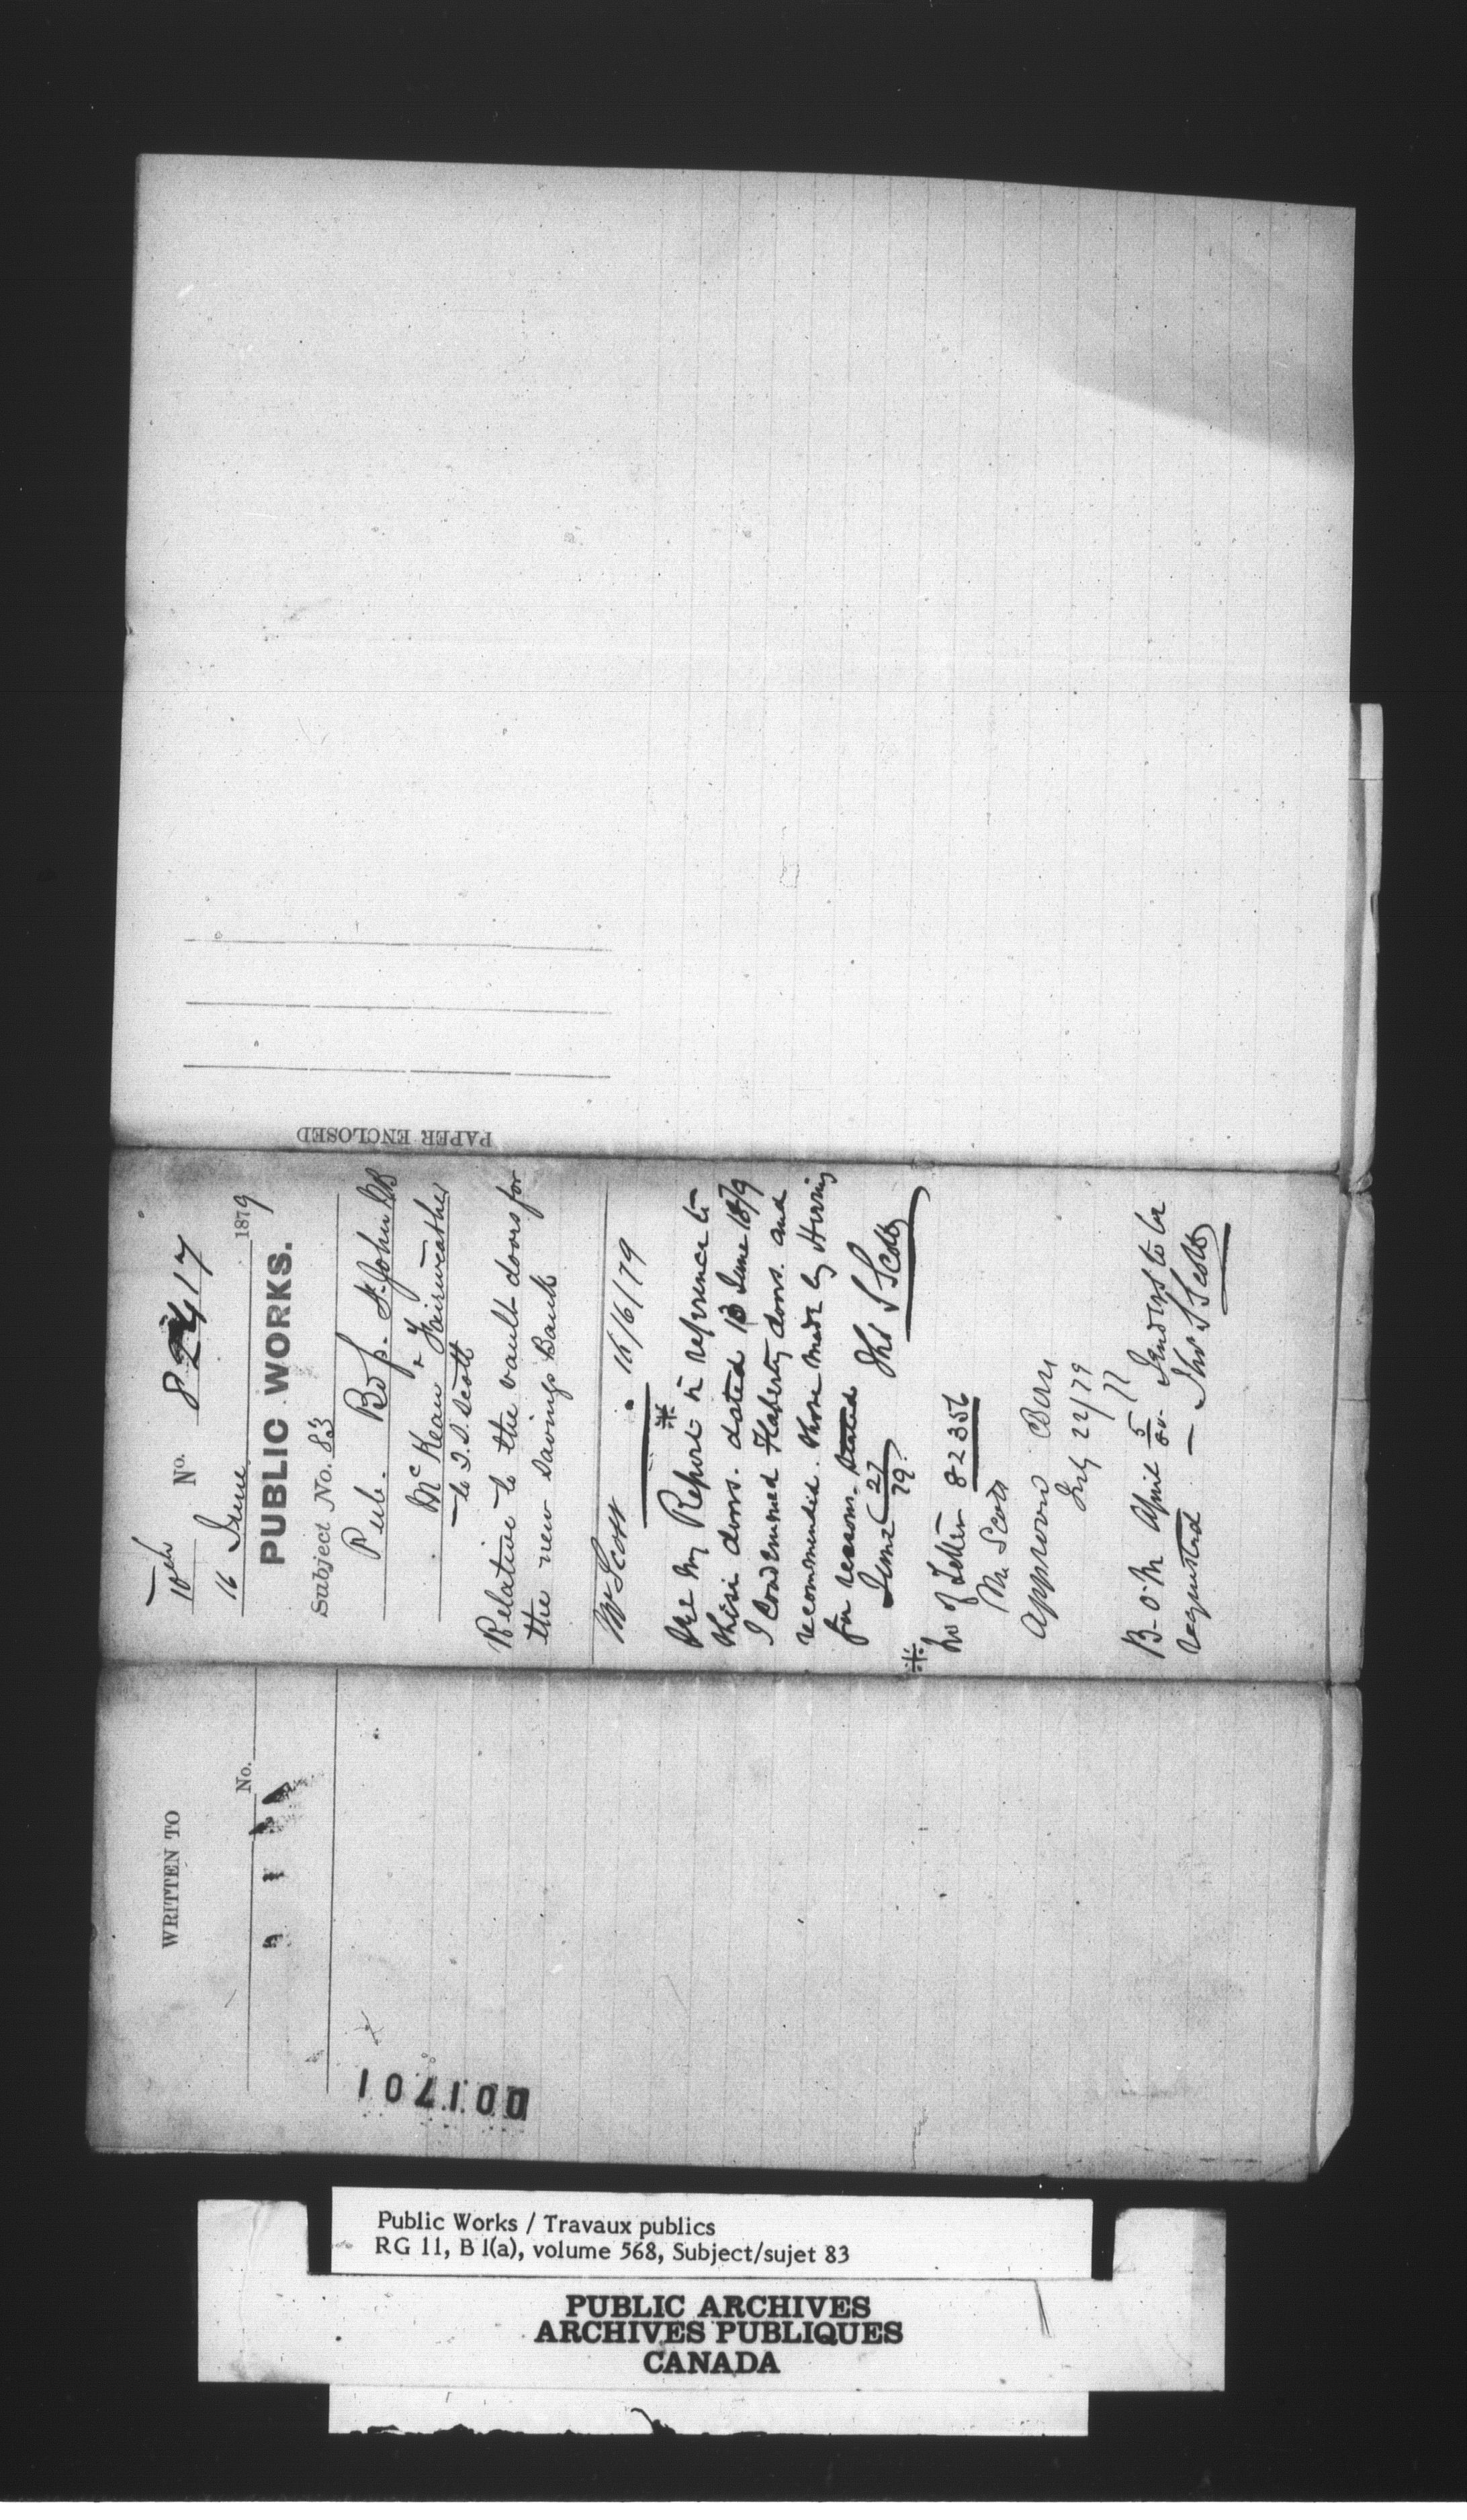 10th No. 82417
16 June 1879
PUBLIC WORKS.
Subject No. 83
Pub. Bdgs. St. John NB
McKean & Fairweather
to T.S. Scott
Relative to the vault doors for
the new Savings Bank
Mr Scott 16/6/79
See my Report in reference to *
these doors. dated 13 June 1879
I condemned Flaherty doors. and
recommended. those made by Herring
for reasons stated
June 27/79. Thos S Scott
*
No of Letter 82356
Mr Scott
approved
July 22/79
B-O-M April 5 Tenders to be
requested — Thos S Scott
PAPER ENCLOSED
WRITTEN TO
No.
001701
Public Works / Travaux publics
RG 11, B 1(a), volume 568, Subject/sujet 83
PUBLIC ARCHIVES
ARCHIVES PUBLIQUES
CANADA